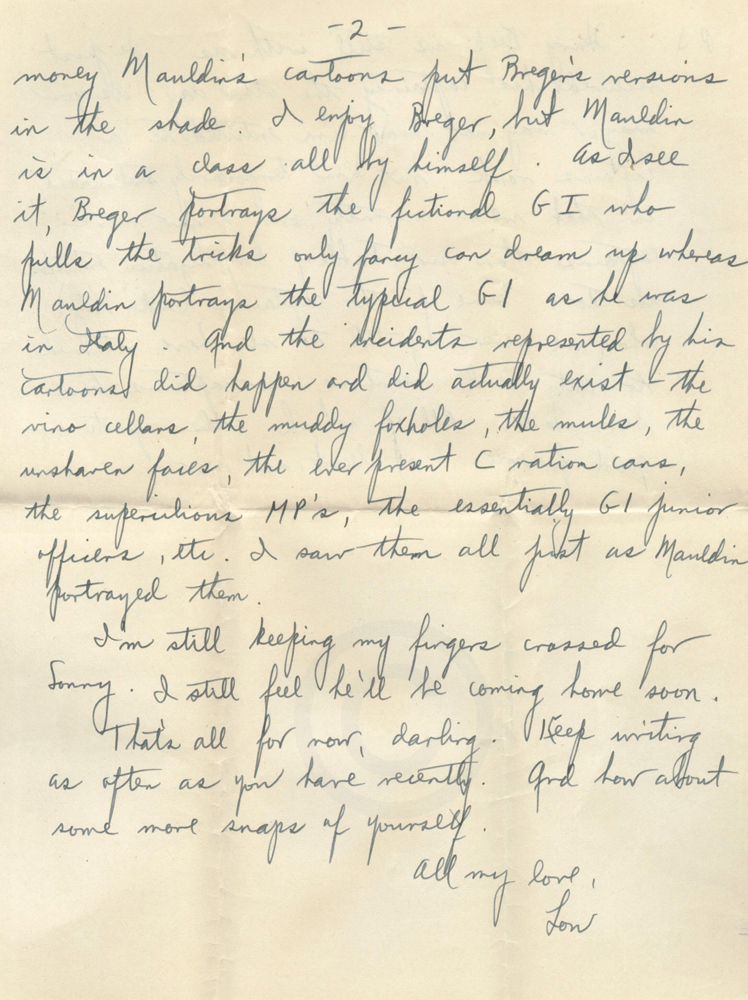 -2-
money Mauldin's cartoons put Breger's versions
in the shade. I enjoy Breger, but Mauldin
is in a class all by himself. As I see
it, Breger portrays the fictional GI who
pulls the tricks only fancy can dream up whereas
Mauldin portrays the typical GI as he was
in Italy. And the incidents represented by his
cartoons did happen and did actually exist - the
vino cellars, the muddy foxholes, the mules, the
unshaven faces, the ever present C ration cans,
the supercilious MP's, the essentially GI junior
officers, etc. I saw them all just as Mauldin
portrayed them.
I'm still keeping my fingers crossed for
Sonny. I still feel he'll be coming home soon.
That's all for now, darling. Keep writing
as often as you have recently. And how about
some more snaps of yourself.
All my love,
Lou